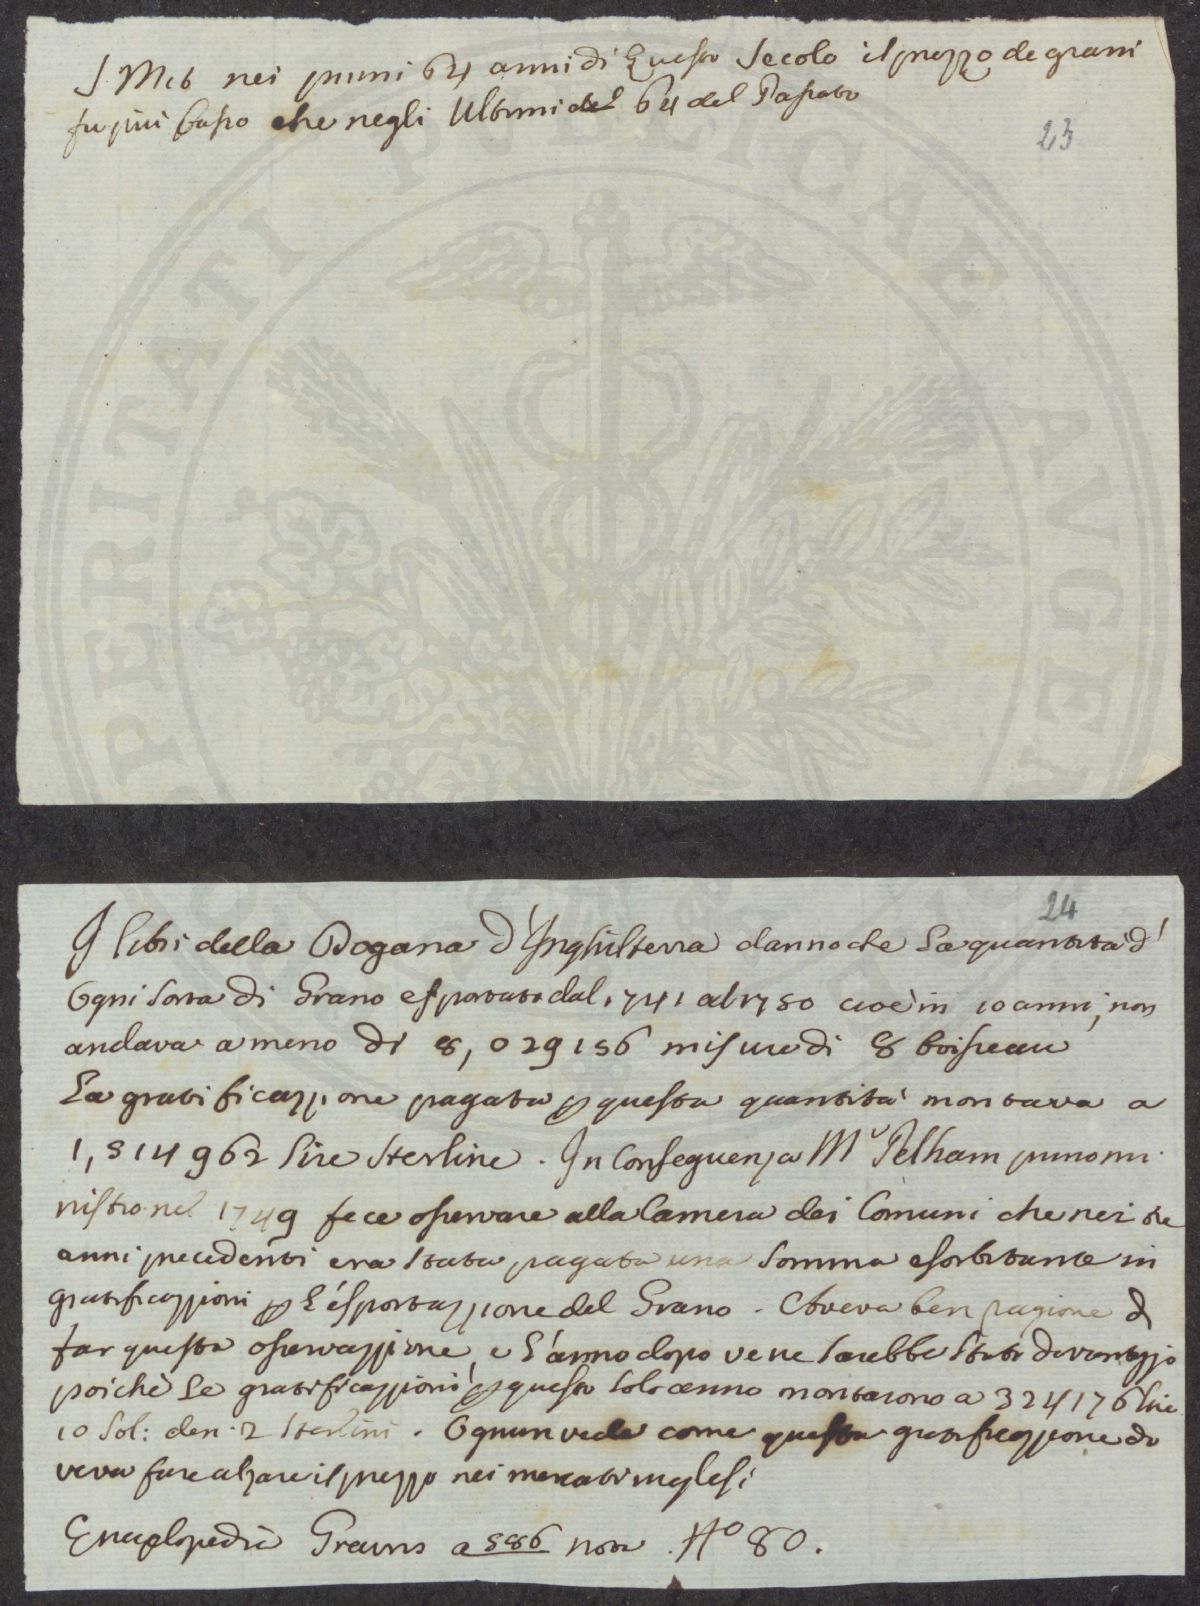 nei primi 64 anni di questo secolo il prezzo de grani
fu piu basso che negli Ultimi del 64 del Passato
23
24
I libri della Dogana d'Inghilterra danno che la quantità d'
Ogni sorta di Grano esportato dal 1741 al 1750 cioè in 10 anni, non
andava a meno di 8,029156 misure di 8 boisseau
La gratificazzione pagata p questa quantità montava a
1,514962 lire sterline. In Conseguenza Mr Pelham primo mi
nistro nel 1749 fece osservare alla Camera dei Comuni che nei tre
anni precedenti era stata pagata una somma esorbitante in
gratificazzioni p l'esportazzione del Grano. Aveva ben ragione di
far questa osservazzione, e l'anno dopo ve ne sarebbe stata davantaggio
poiché le gratificazzioni p questo solo anno montarono a 324176 lire
10 Sol: den: 2 Sterlini. Ognun vede come questa gratificazzione do
veva fare alzare il prezzo nei mercati inglesi
Enciclopedia Grains a 556 nota No 80.
PERITATI PUBLICAE AUGEN